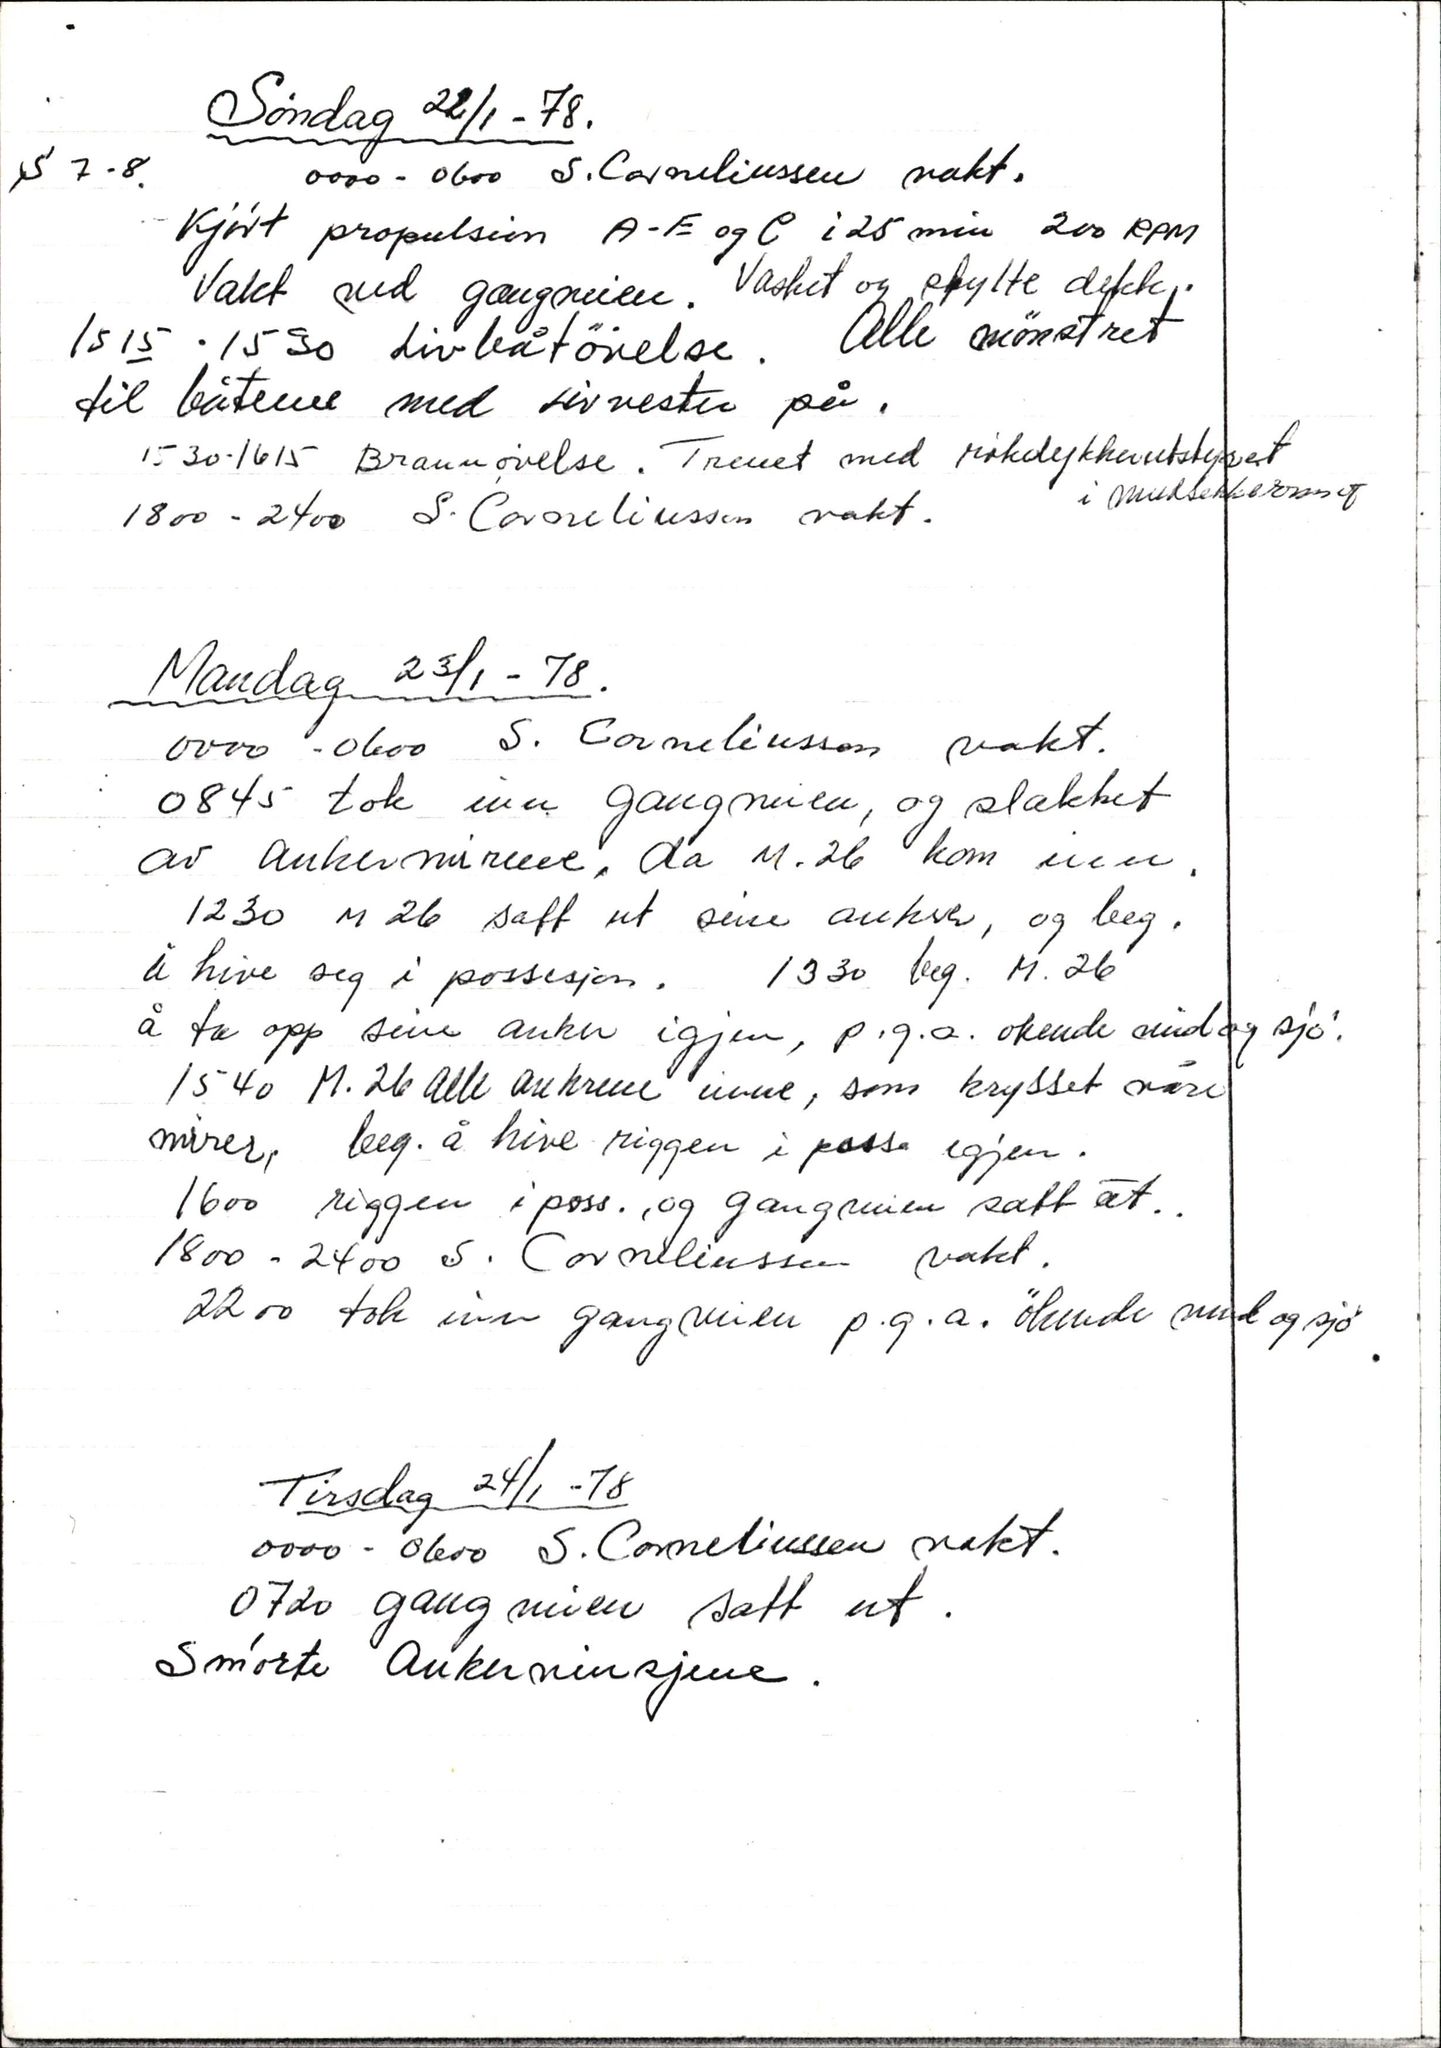 Søndag 22/1-78.
S 7-8. 0000-0600 S. Corneliussen vakt.
Kjørt propulsion A-E og C i 25 min 200 RPM
Vakt ved gangveien. Vasket og spylte dekk.
1515 - 1530 Livbåtövelse. Alle mönstret
til båtene med livvester på.
1530-1615 Brannøvelse. Trenet med røkdykkerutstyret
i mudsekkerommet
1800-2400 S. Corneliussen vakt.
Mandag 23/1-78.
0000-0600 S. Corneliussen vakt.
0845 tok inn gangveien, og slakket
av Ankervirene, da M.26 kom inn.
1230 M 26 satt ut sine anker, og beg.
å hive seg i possesjon. 1330 beg. M.26
å ta opp sine anker igjen, p.g.a. økende vind og sjø.
1540 M.26 Alle ankrene inne, som krysset våre
virer, beg. å hive riggen i poss igjen.
1600 riggen i poss., og gangveien satt ut..
1800-2400 S. Corneliussen vakt.
2200 tok inn gangveien p.g.a. ökende vind og sjø.
Tirsdag 24/1-78
0000-0600 S. Corneliussen vakt.
0720 gangveien satt ut.
Smørte Ankervinsjene.